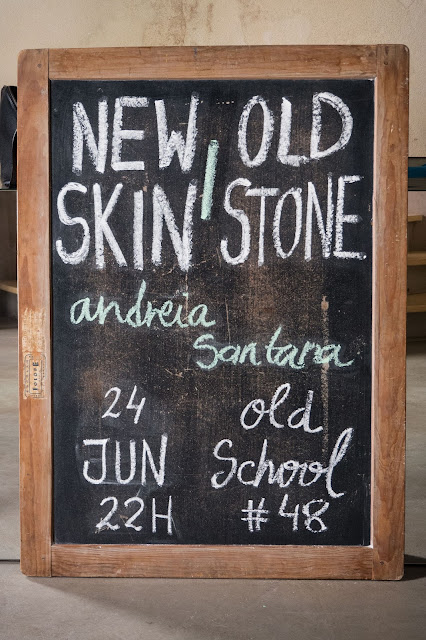 NEW / OLD
SKIN STONE
andreia
Santana
24
JUN
22H
old
School
#48